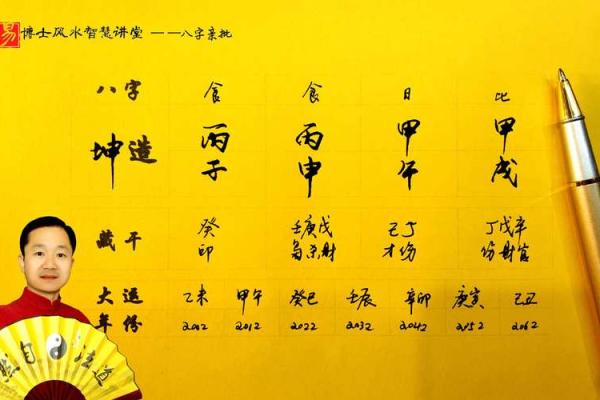 易 博士风水智慧讲堂 ——八字亲批
八字 食 食 日 比
坤造 丙子 丙申 甲午 甲戌
藏干 癸 壬庚戊 己丁 丁戊辛
印 枭杀财 才伤 伤财官
大运 乙未 甲午 癸巳 壬辰 辛卯 庚寅 己丑
年份 2002 2012 2022 2032 2042 2052 2062
道法自然